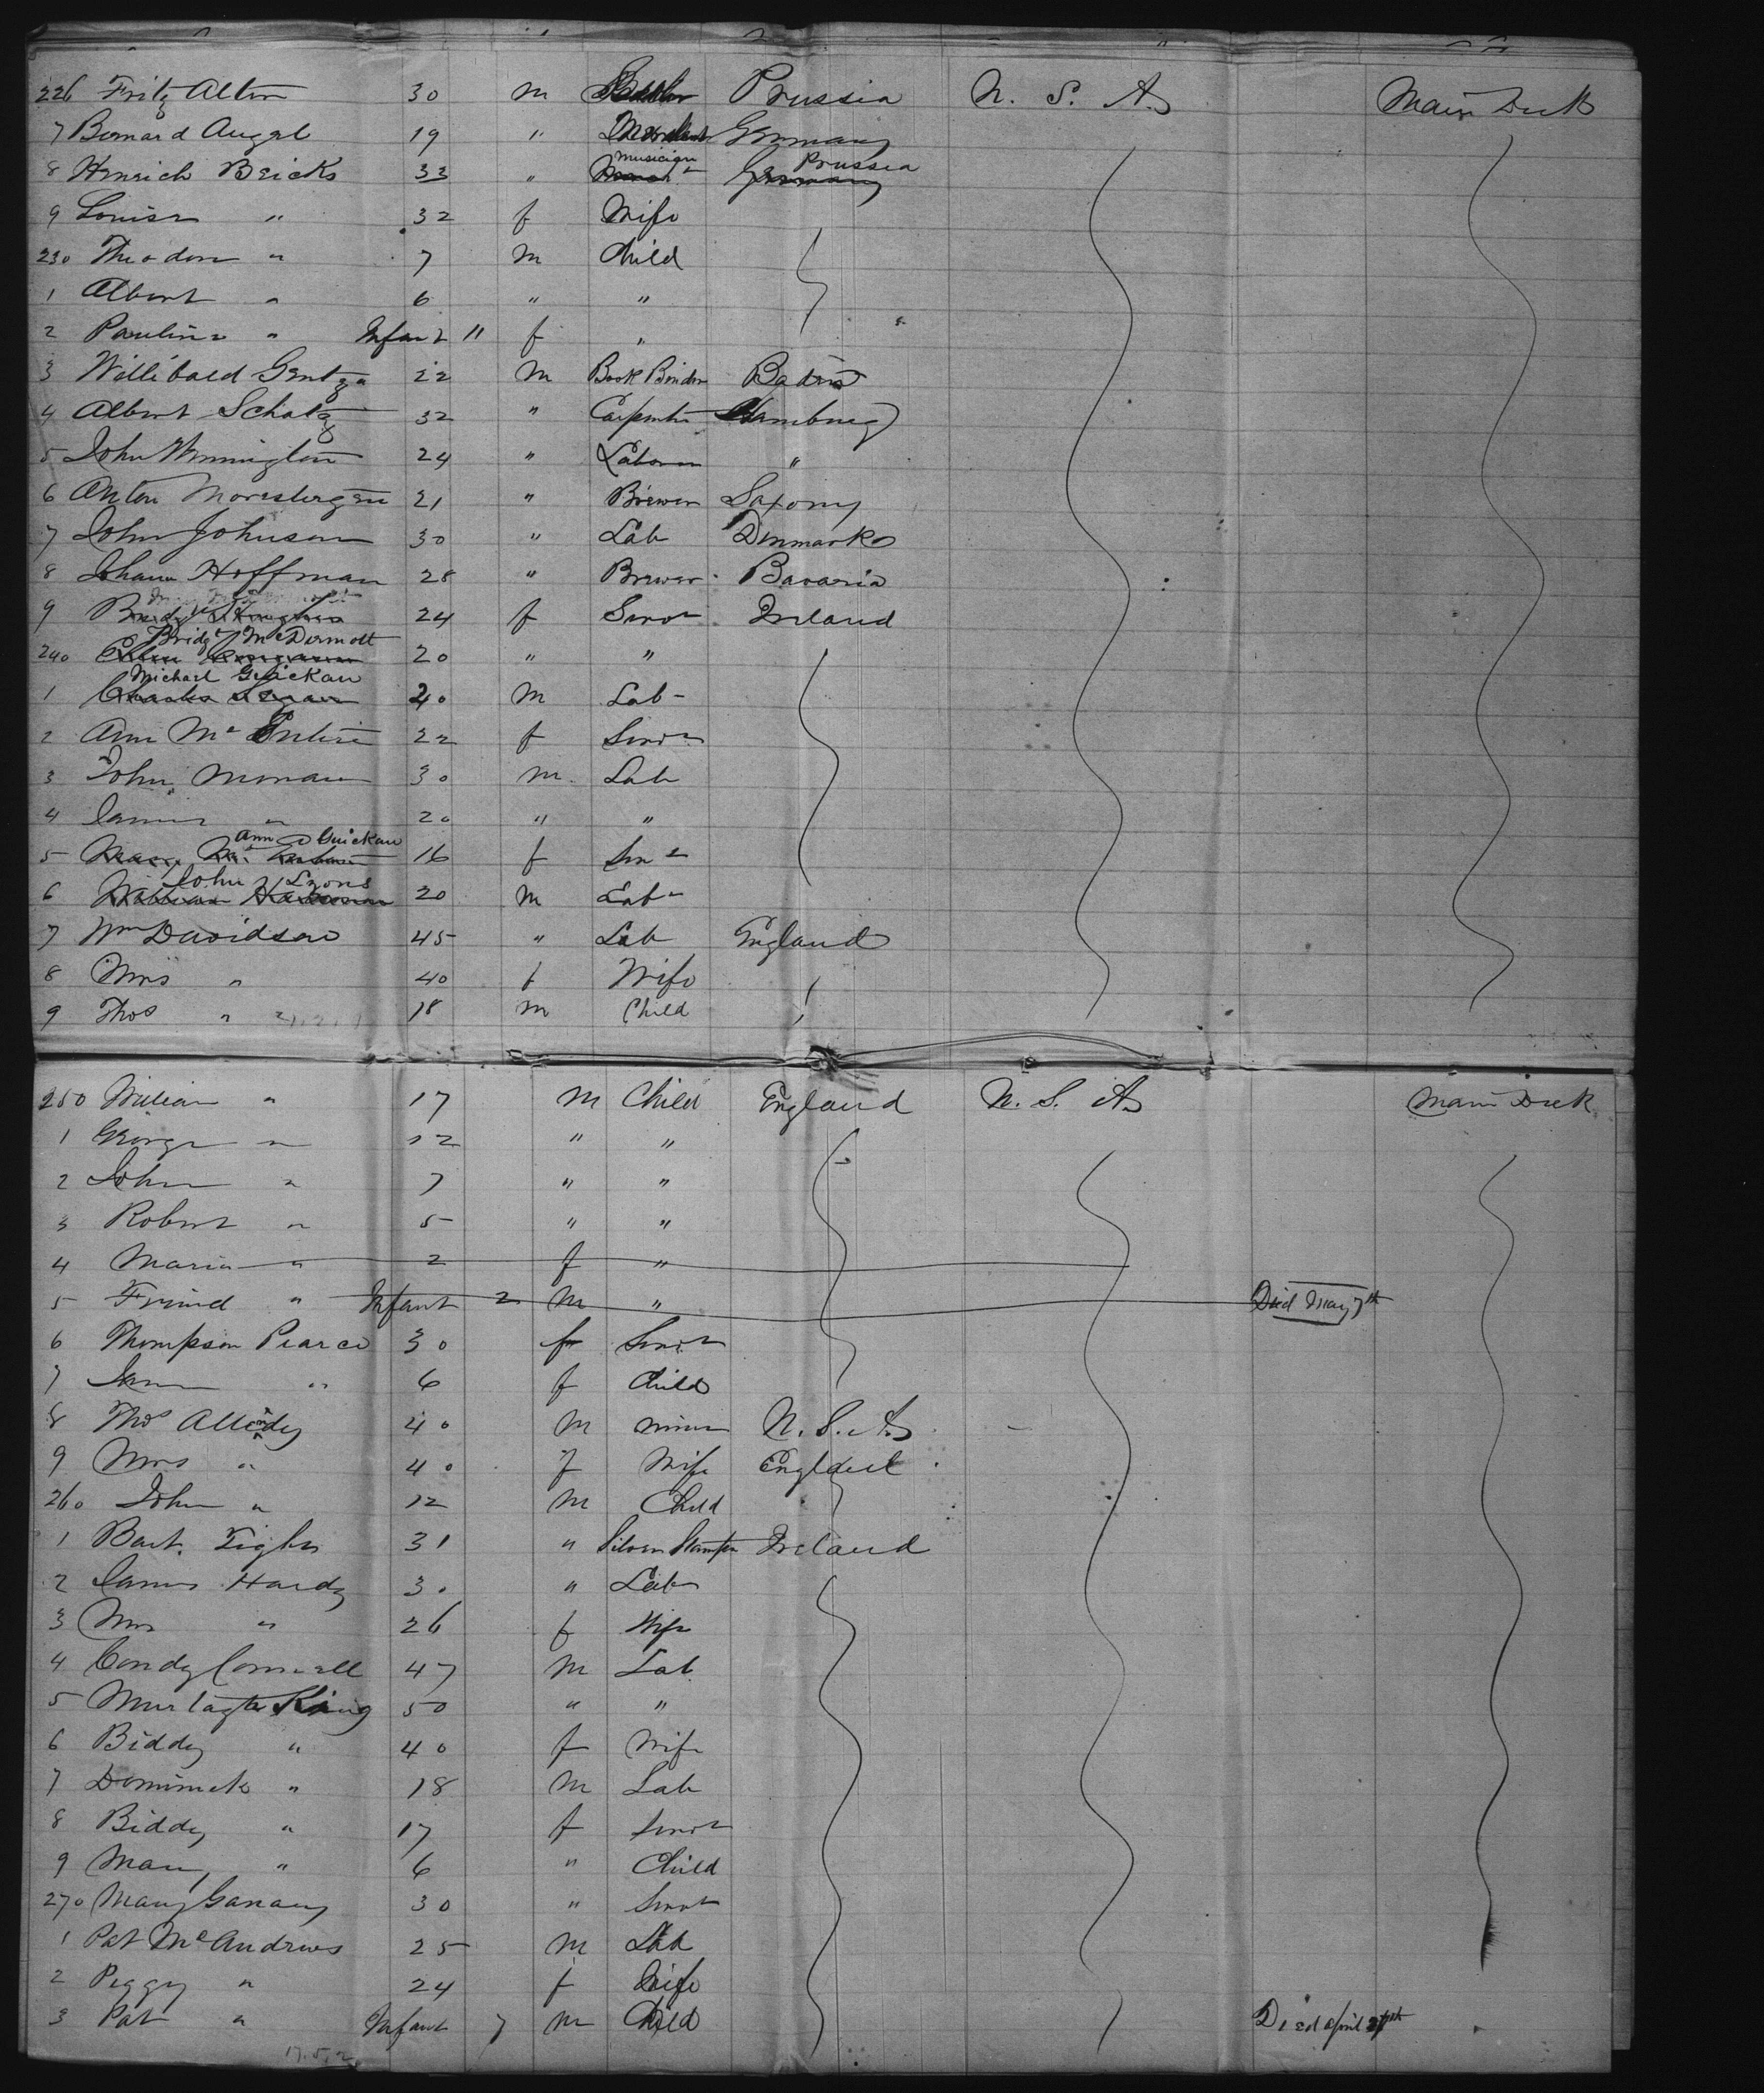 226 Fritz Alten 30 m Prussia U. S. A. Main Deck
7 Bernard Augel 19 " Germany
8 Henrich Bricks 33 " musician Prussia
9 Louisa " 32 f Wife
230 Theodore " 7 m Child
1 Albert " 6 " "
2 Paulina " Infant 11 f "
3 Willibald Gentza 22 m Book Binder Baden
4 Albert Scholz 32 " Carpenter Hamburg
5 John Wennington 24 " Laborer "
6 Anton 21 " Brewer Saxony
7 John Johnson 30 " Lab Denmark
8 Johann Hoffman 28 " Brewer Bavaria
9 24 f Servt Ireland
240 Bridgt McDermott 20 " "
1 Michael Guickan 20 m Lab
2 Ann McEntire 22 f Servt
3 John Monan 30 m Lab
4 James " 20 " "
5 Ann Guickan 16 f Servt
6 John Lyons 20 m Lab
7 Wm Davidson 45 " Lab England
8 Mrs " 40 f Wife
9 Thos " 18 m Child
250 William " 17 m Child England U. S. A. Main Deck
1 George " 12 " "
2 John " 7 " "
3 Robert " 5 " "
4 Maria " 2 f "
5 Friend " Infant 2 m " Died May 7th
6 Thompson Pearce 30 f Servt
7 Jane " 6 f Child
8 Thos 40 m miner U. S. A.
9 Mrs " 40 f Wife England
260 John " 12 m Child
1 Bart. Tighe 31 " Silver Stamper Ireland
2 James Hardy 30 " Lab
3 Mrs " 26 f Wife
4 Condy Connell 47 m Lab
5 Murtagh King 50 " "
6 Biddy " 40 f Wife
7 Dominick " 18 m Lab
8 Biddy " 17 f Servt
9 Mary " 6 " Child
270 Mary Garany 30 " Servt
1 Pat McAndrews 25 m Lab
2 Peggy " 24 f Wife
3 Pat " Infant 7 m Child Died April